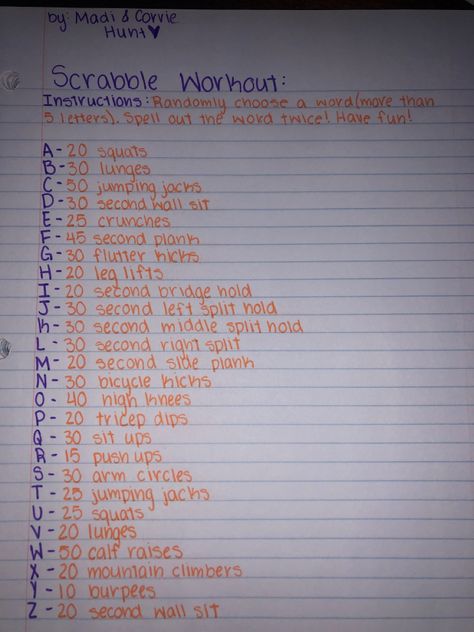 by: Madi & Corrie
Hunt♥
Scrabble Workout:
Instructions: Randomly choose a word (more than
5 letters). Spell out the word twice! Have fun!
A - 20 squats
B - 30 lunges
C - 50 jumping jacks
D - 30 second wall sit
E - 25 crunches
F - 45 second plank
G - 30 flutter kicks
H - 20 leg lifts
I - 20 second bridge hold
J - 30 second left split hold
K - 30 second middle split hold
L - 30 second right split
M - 20 second side plank
N - 30 bicycle kicks
O - 40 high knees
P - 20 tricep dips
Q - 30 sit ups
R - 15 push ups
S - 30 arm circles
T - 25 jumping jacks
U - 25 squats
V - 20 lunges
W - 50 calf raises
X - 20 mountain climbers
Y - 10 burpees
Z - 20 second wall sit